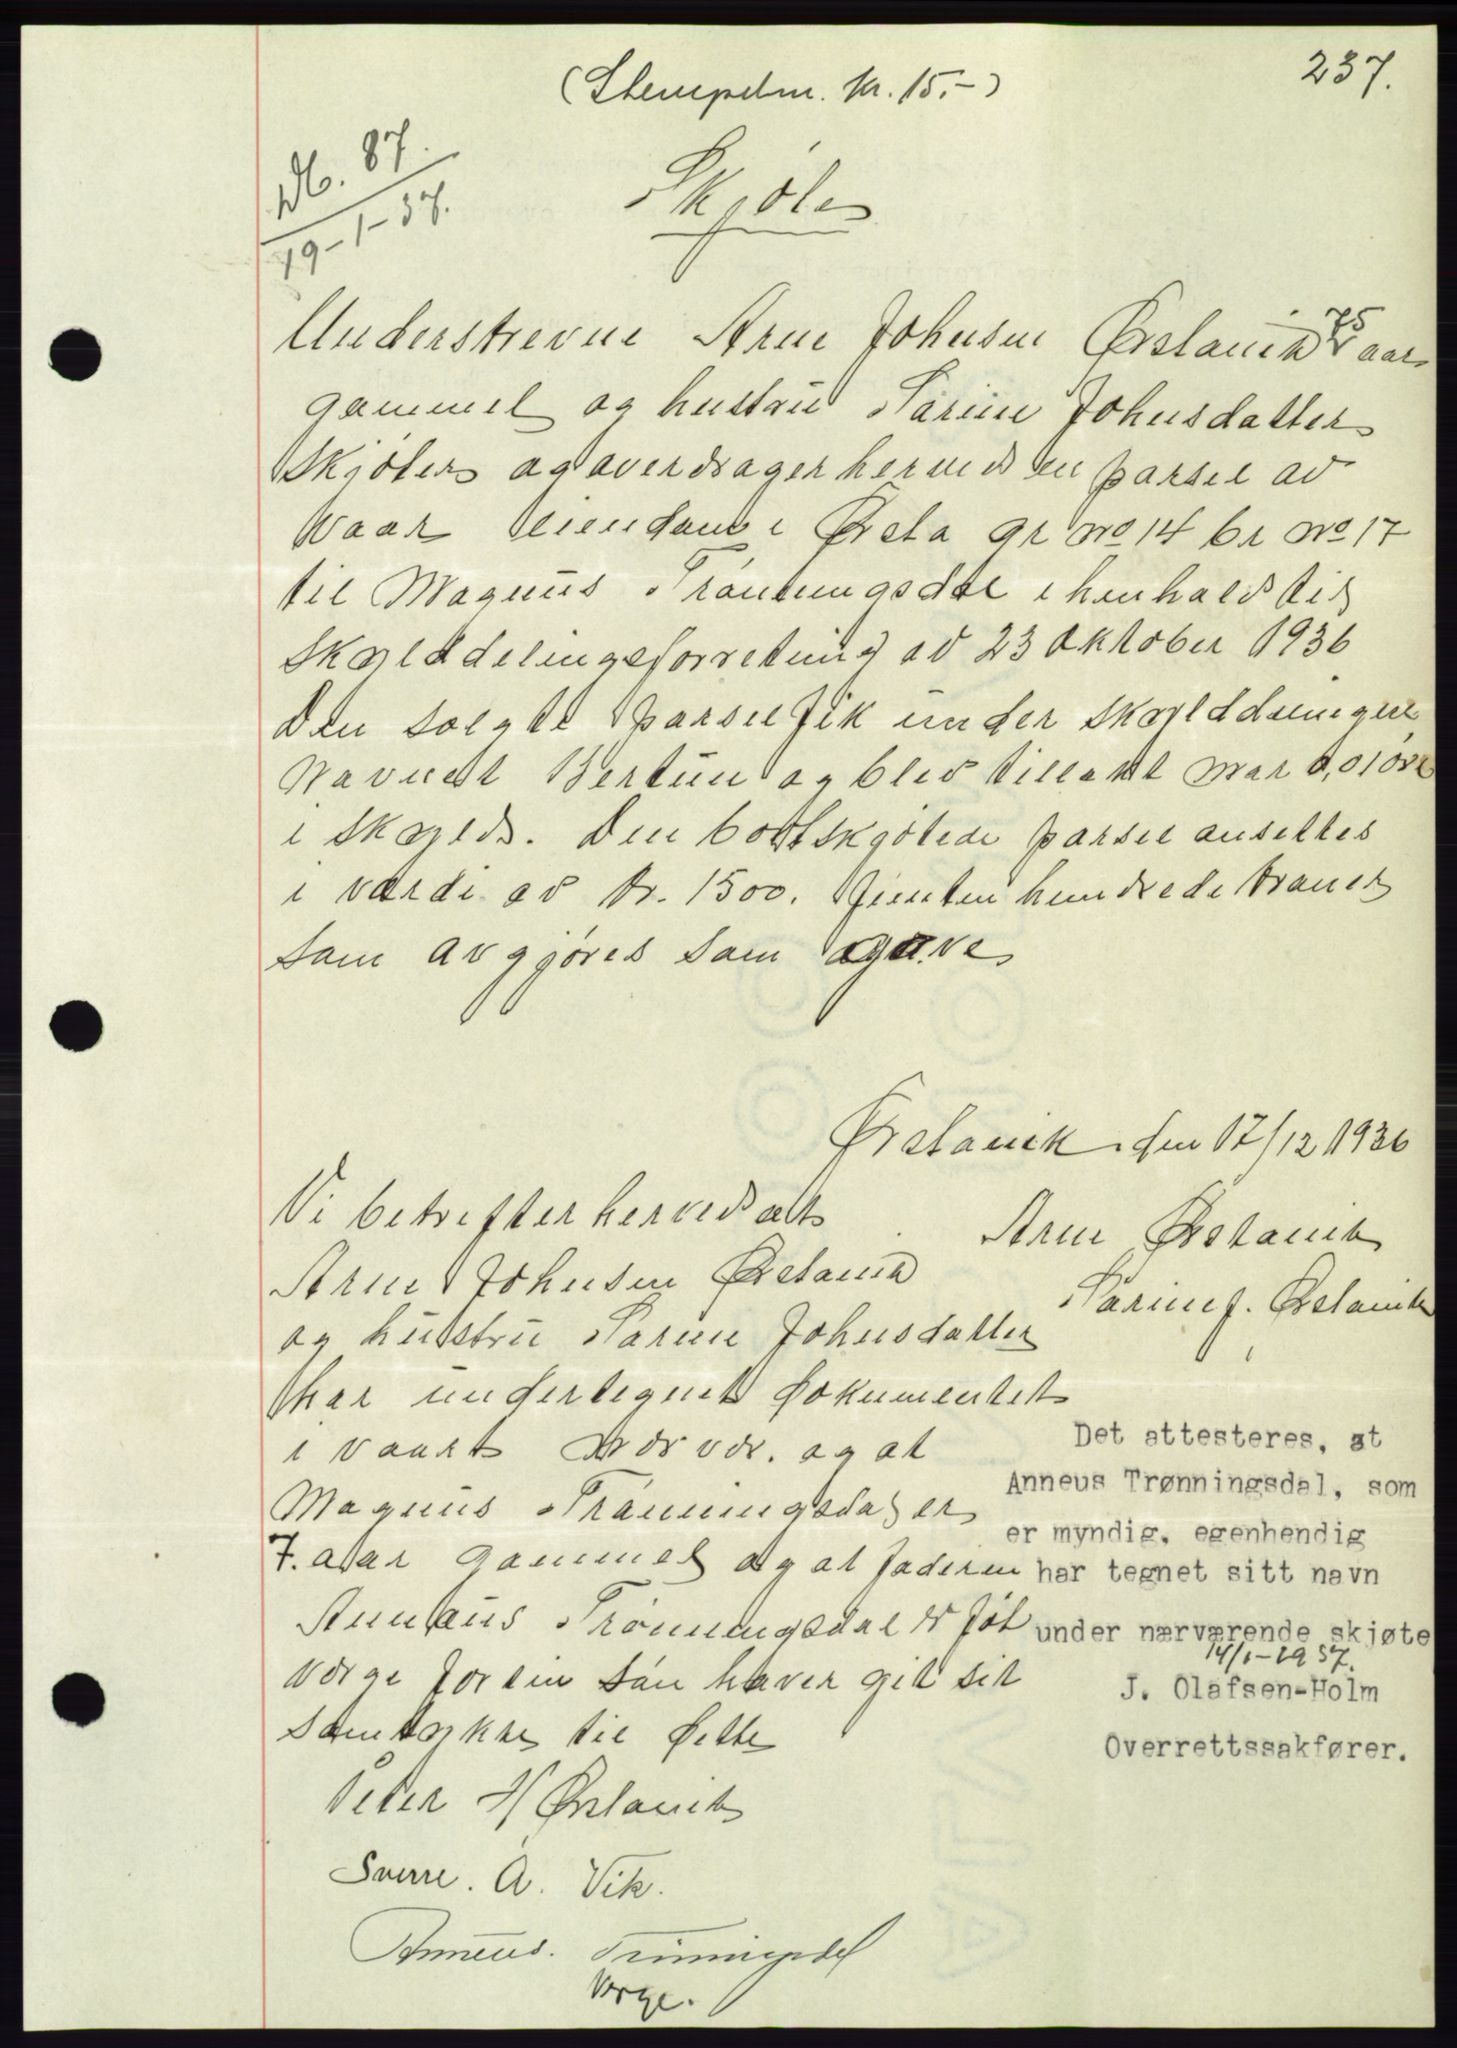 237.
(Stempelm. kr. 15.-)
Db. 87.
19-1-37.
Skjøte
Understrevne Arne Johnsen Ørstavik 75 aar
gammel og hustru Sarine Johnsdatter
skjøter og overdrager herved en parsel av
vaar eiendom i Ørsta gr no 14 br no 17
til Magnus Trønningsdal i henhold til
skylddelingsforretning av 23 Oktober 1936
Den solgte parsel fik under skylddelingen
navnet Bertun og blev tillakt mar 0,01 øre
i skyld. Den bortskjøtede parsel ansettes
i værdi av kr. 1500. Femten hundrede kroner
som avgjøres som gave
Ørstavik den 17/12 1936
Vi betrefter herved at
Arne Ørstavik
Arne Johnsen Ørstavik
Sarine J. Ørstavik
og hustru Sarine Johnsdatter
har undertegnet dokumentet
i vaart nærvær. og at
Magnus Trønningsdal er
7. aar gammel og at faderen
Annæus Trønningsdal er føt
værge for sin søn haver git sit
samtykke til dette
Det attesteres, at
Anneus Trønningsdal, som
er myndig, egenhendig
har tegnet sitt navn
under nærværende skjøte
14/1-1937.
J. Olafsen-Holm
Overrettssakfører.
Peter H Ørstavik
Sverre. A. Vik.
Anneus. Trønningsdal
Verge.